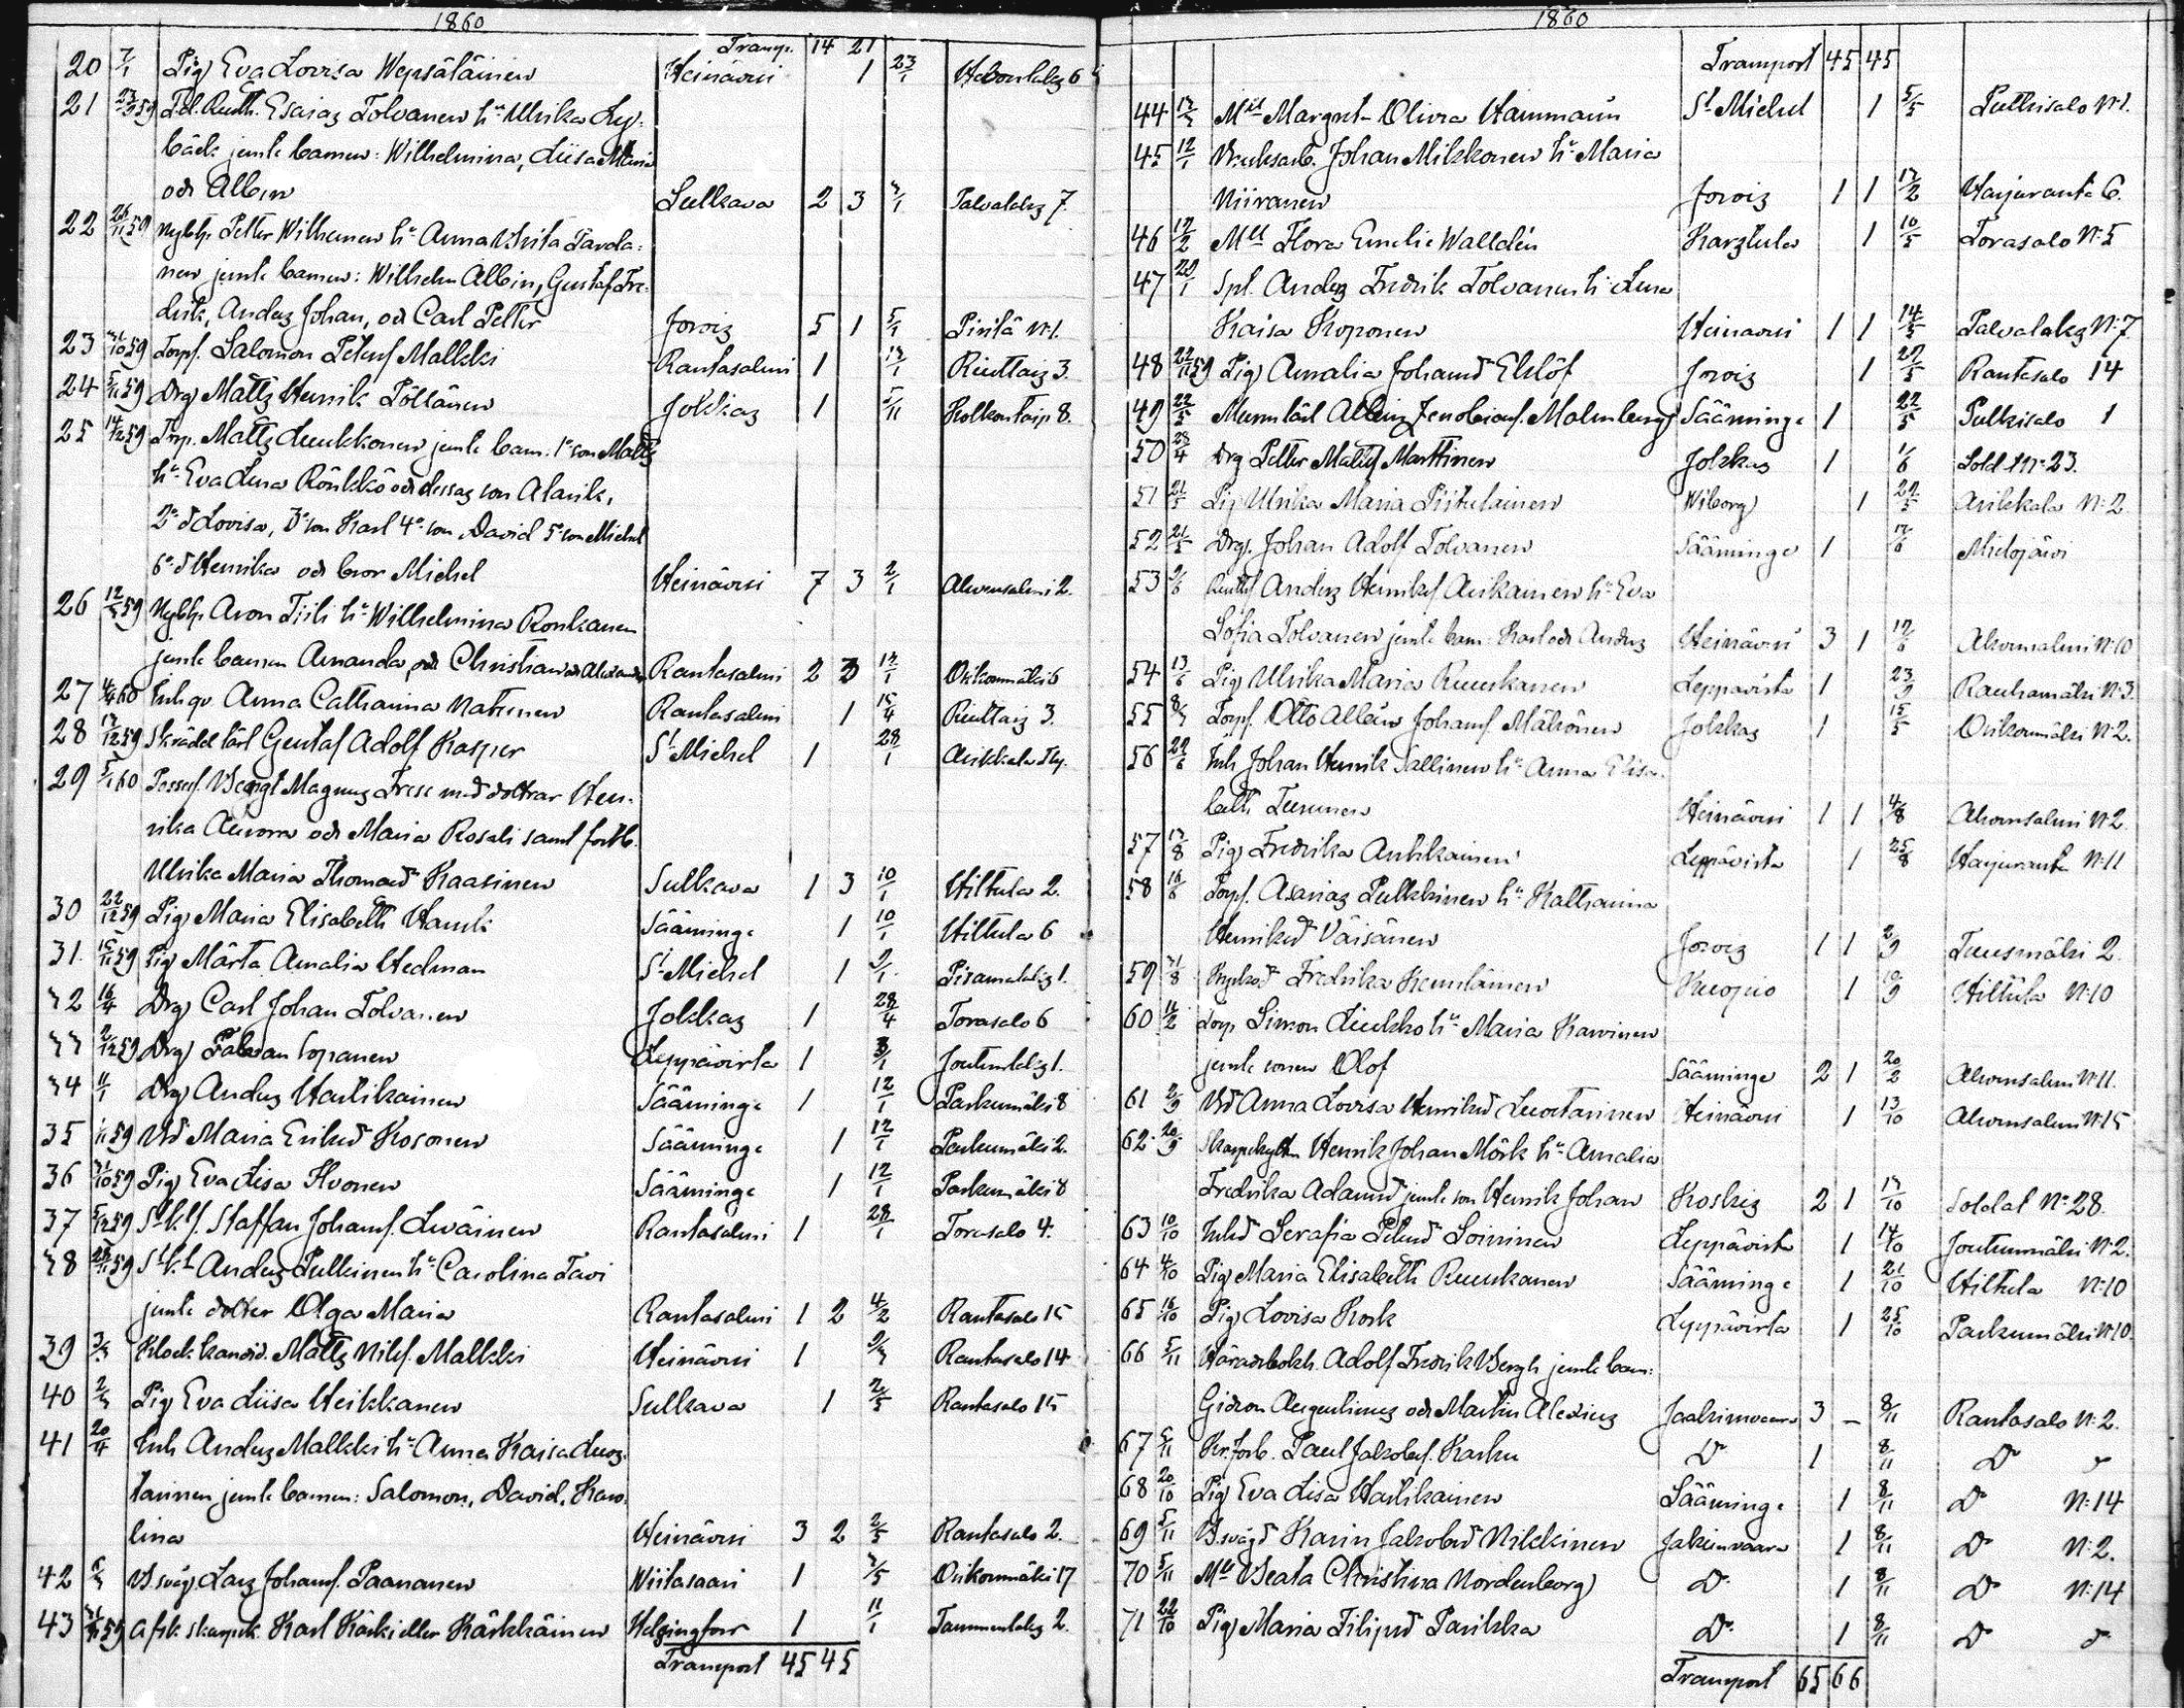 1860
Transp. 14 21
20 7/1 Pig Eva Lovisa Wepsäläinen Heinävesi 1 23/1 6
21 59 Esaias Tolvanen h:u Ulrika Ly-
bäck jemte barnen: Wilhelmina, Liisa Maria
och Albin Sulkava 2 3 Palvalaks 7.
22 59 Nybb. Petter Wilhunen h:u Anna Brita Tavola-
nen jemte barnen: Wilhelm Albin, Gustaf Fre-
drik, Anders Johan, och Carl Petter Jorois 5 1 5/1 Pirilä N:1.
23 31/10 59 Torpf. Salomon Petersf. Malkki Rantasalmi 1 Riuttais 3.
24 5/11 59 Drg Matts Henrik Pöllänen Jokkas 1 5/11 Kolkontaip. 8.
25 14/12 59 Torp. Matts Luukkonen jemte barn. 1:o son Matts
h:u Eva Lena Rönkkö och dessas son Alarik,
2:o d Lovisa, 3:o son Karl 4:o son David 5:o son Michel
6:o d Henrika och bror Michel Heinävesi 7 3 2/1 Ahvensalmi 2.
26 59 Nybb. Aron Tiili h:u Wilhelmina Ronkanen
jemte barnen Amanda, och Christian och Alexander Rantasalmi 2 3 Oikonmäki 6
27 60 Inh. qv. Anna Catharina Natunen Rantasalmi 1 15/4 Riuttais 3.
28 59 Skrädd. lärl Gustaf Adolf Kasper S:t Michel 1 28/1 Asikkala
29 5/1 60 Possess. Bengt Magnus Frese med döttrar Hen-
rika Aurora och Maria Rosali samt fostb.
Ulrika Maria Thomasd:r Kaasinen Sulkava 1 3 10/1 Hiltula 2.
30 22/12 59 Pig Maria Elisabeth Sääminge 1 10/1 Hiltula 6
31. 15/11 59 Pig Märta Amalia Hedman S:t Michel 1 9/1 1.
32 16/4 Drg Carl Johan Tolvanen Jokkas 1 28/4 Torasalo 6
33 2/12 59 Drg Fabian Sopanen Leppävirta 1 1.
34 11/1 Drg Anders Hartikainen Sääminge 1 12/1 Parkumäki 8
35 59 Maria Eriksd:r Kosonen Sääminge 1 12/1 Parkumäki 2.
36 31/10 59 Pig Eva Lisa Ihvonen Sääminge 1 12/1 Parkumäki 8
37 5/12 59 Staffan Johansf. Leväinen Rantasalmi 1 28/1 Torasalo 4.
38 59 Anders Pulkinen h:u Carolina Tavi
jemte dotter Olga Maria Rantasalmi 1 2 4/2 Rantasalo 15
39 3/3 Klock. kandid. Matts Nilsf. Malkki Heinävesi 1 Rantasalo 14
40 2/3 Pig Eva Liisa Heikkanen Sulkava 1 2/5 Rantasalo 15
41 Inh Anders Malkki h:u Anna Kaisa Luos-
tarinen jemte barnen: Salomon, David, Karo-
lina Heinävesi 3 2 2/5 Rantasalo 2.
42 Lars Johansf. Paananen Wiitasaari 1 3/5 Oikonmäki 17
43 59 Afsk. skarpsk. Karl Kärki eller Kärkkäinen Helsingfors 1 11/1 Tammenlaks 2.
Transport 45 45
1860
Transport 45 45
44 M:ll Margret Olivia Hammarin S:t Michel 1 5/5 Putkisalo N:1.
45 12/1 Bruksarb. Johan Mikkonen h:u Maria
Niiranen Jorois 1 1 Harjuranta 6.
46 M:ll Flora Emelie Walldén Karstula 1 10/5 Torasalo N:5
47 20/1 Anders Fredrik Tolvanen h:u Lena
Kaisa Koponen Heinävesi 1 1 14/5 Palvalaks N:7
48 22/11 59 Pig Amalia Johansd:r Eklöf Jorois 1 Rantasalo 14
49 22/5 Albin Malmberg Sääminge 1 22/5 Putkisalo 1
50 28/4 Drg Petter Matts Marttinen Jokkas 1 1/6 Sold. N:o 23.
51 21/5 Pig Ulrika Maria Piitulainen Wiborg 1 Asikkala N:2
52 21/5 Drg. Johan Adolf Tolvanen Sääminge 1 Mielojärvi
53 Anders Henriksf. Asikainen h:u Eva
Sofia Tolvanen jemte barn: Karl och Anders Heinävesi 3 1 Ahvensalmi N:10
54 13/6 Pig Ulrika Maria Ruuskanen Leppävirta 1 23/9 Rauhamäki N:3.
55 Torpf. Otto Albin Johansf. Mähönen Jokkas 1 15/5 Oikonmäki N:2.
56 Inh Johan Henrik Sallinen h:u Anna Elisa-
beth Turunen Heinävesi 1 1 4/8 Ahvensalmi N:2.
57 Pig Fredrika Asikkainen Leppävirta 1 25/8 Harjuranta N:11
58 Torpf. Asarias Pulkkinen h:u Katharina
Henriksd:r Väisänen Jorois 1 1 2/9 Tuusmäki 2.
59 31/8 Fredrika Kumläinen Kuopio 1 Hiltula N:10
60 11/2 Torp Simon Liukko h:u Maria Karvinen
jemte sonen Olof Sääminge 2 1 20/2 Ahvensalmi N:11.
61 2/9 Anna Lovisa Henriksd:r Luostarinen Heinävesi 1 13/10 Ahvensalmi N:15
62. 20/9 Skarpskytten Henrik Johan Mörk h:u Amalia
Fredrika Adamsd:r jemte son Henrik Johan Koskis 2 1 Soldat N:o 28.
63 10/10 Inhd Serafia Petersd:r Loininen Leppävirta 1 14/10 Joutenmäki N:2.
64 4/10 Pig Maria Elisabeth Ruuskanen Sääminge 1 21/10 Hiltula N:10
65 16/10 Pig Lovisa Kork Leppävirta 1 25/10 Parkumäki N:10.
66 5/11 Häradsbokh. Adolf Fredrik Bergh jemte barn:
Gideon Augustinus och Martin Alexius Jaakimvaara 3 – 8/11 Rantasalo N:2.
67 5/11 Paul Jakobsf. Karhu D:o 1 8/11 D:o
68 20/10 Pig Eva Lisa Hartikainen Sääminge 1 8/11 D:o N:14
69 5/11 Karin Jakobsd:r Nikkinen Jakimvaara 1 8/11 D:o N:2.
70 5/11 M:ll Beata Christina Nordenberg D:o 1 8/11 D:o N:14
71 22/10 Pig Maria Filipsd:r Parikka D:o 1 8/11 D:o
Transport 65 66